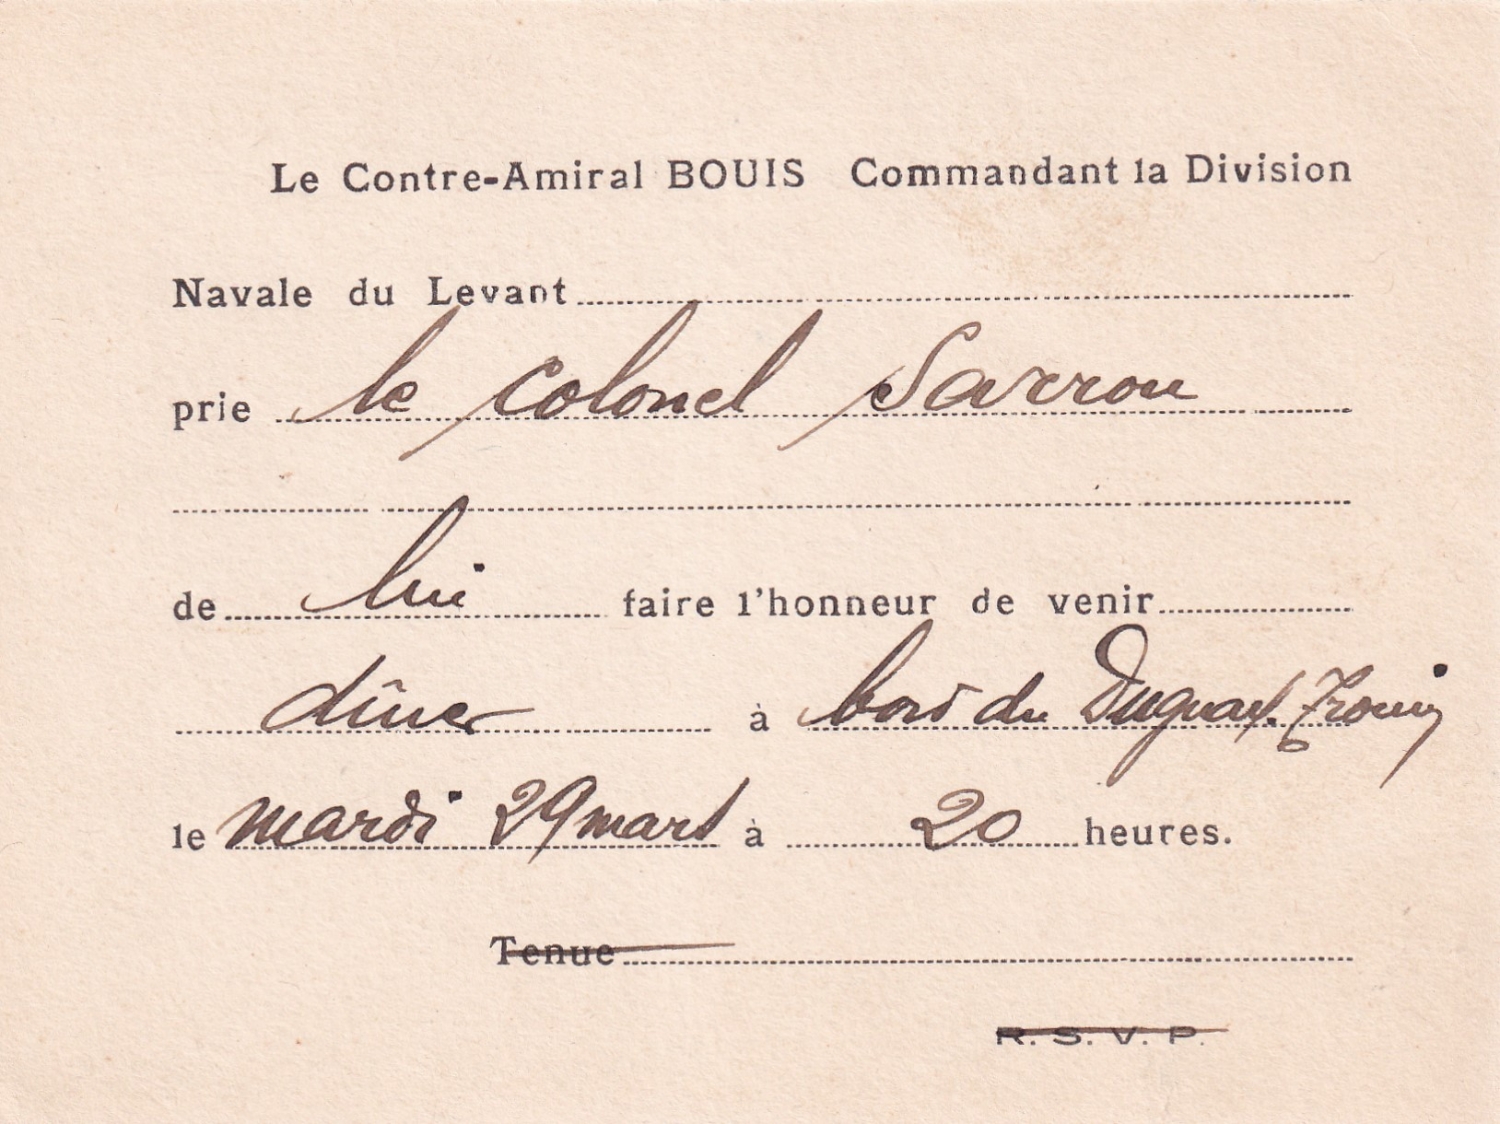 Le Contre-Amiral BOUIS Commandant la Division
Navale du Levant
prie le Colonel Sarrou
de lui faire l'honneur de venir
dîner à bord du Duguay-Trouin
le mardi 29 mars à 20 heures.
Tenue
R. S. V. P.